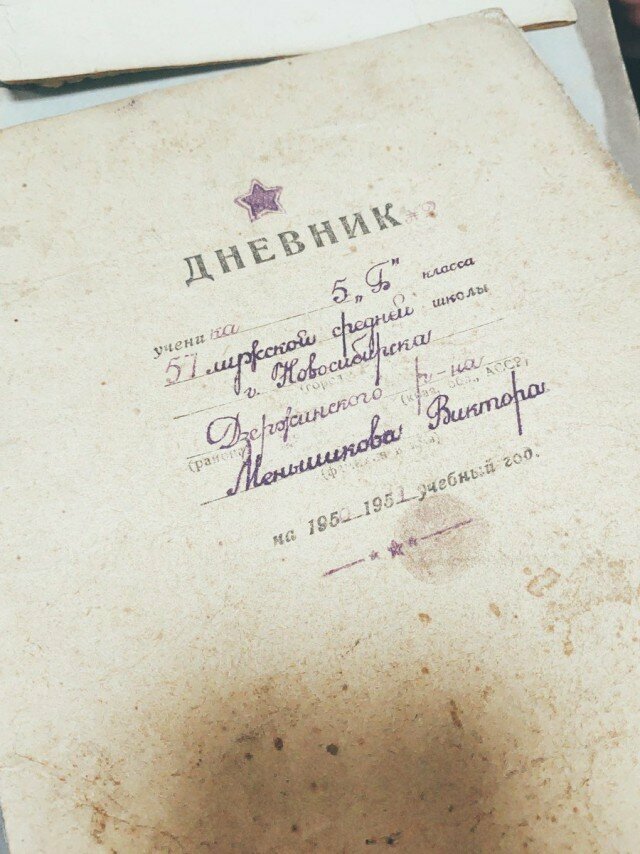 ДНЕВНИК
ученика 5 „Б" класса
57 мужской средней школы
г. Новосибирска
Дзержинского р-на
(район) (край, обл., АССР)
Меньшикова Виктора
(фамилия и имя)
на 1950 1951 учебный год.